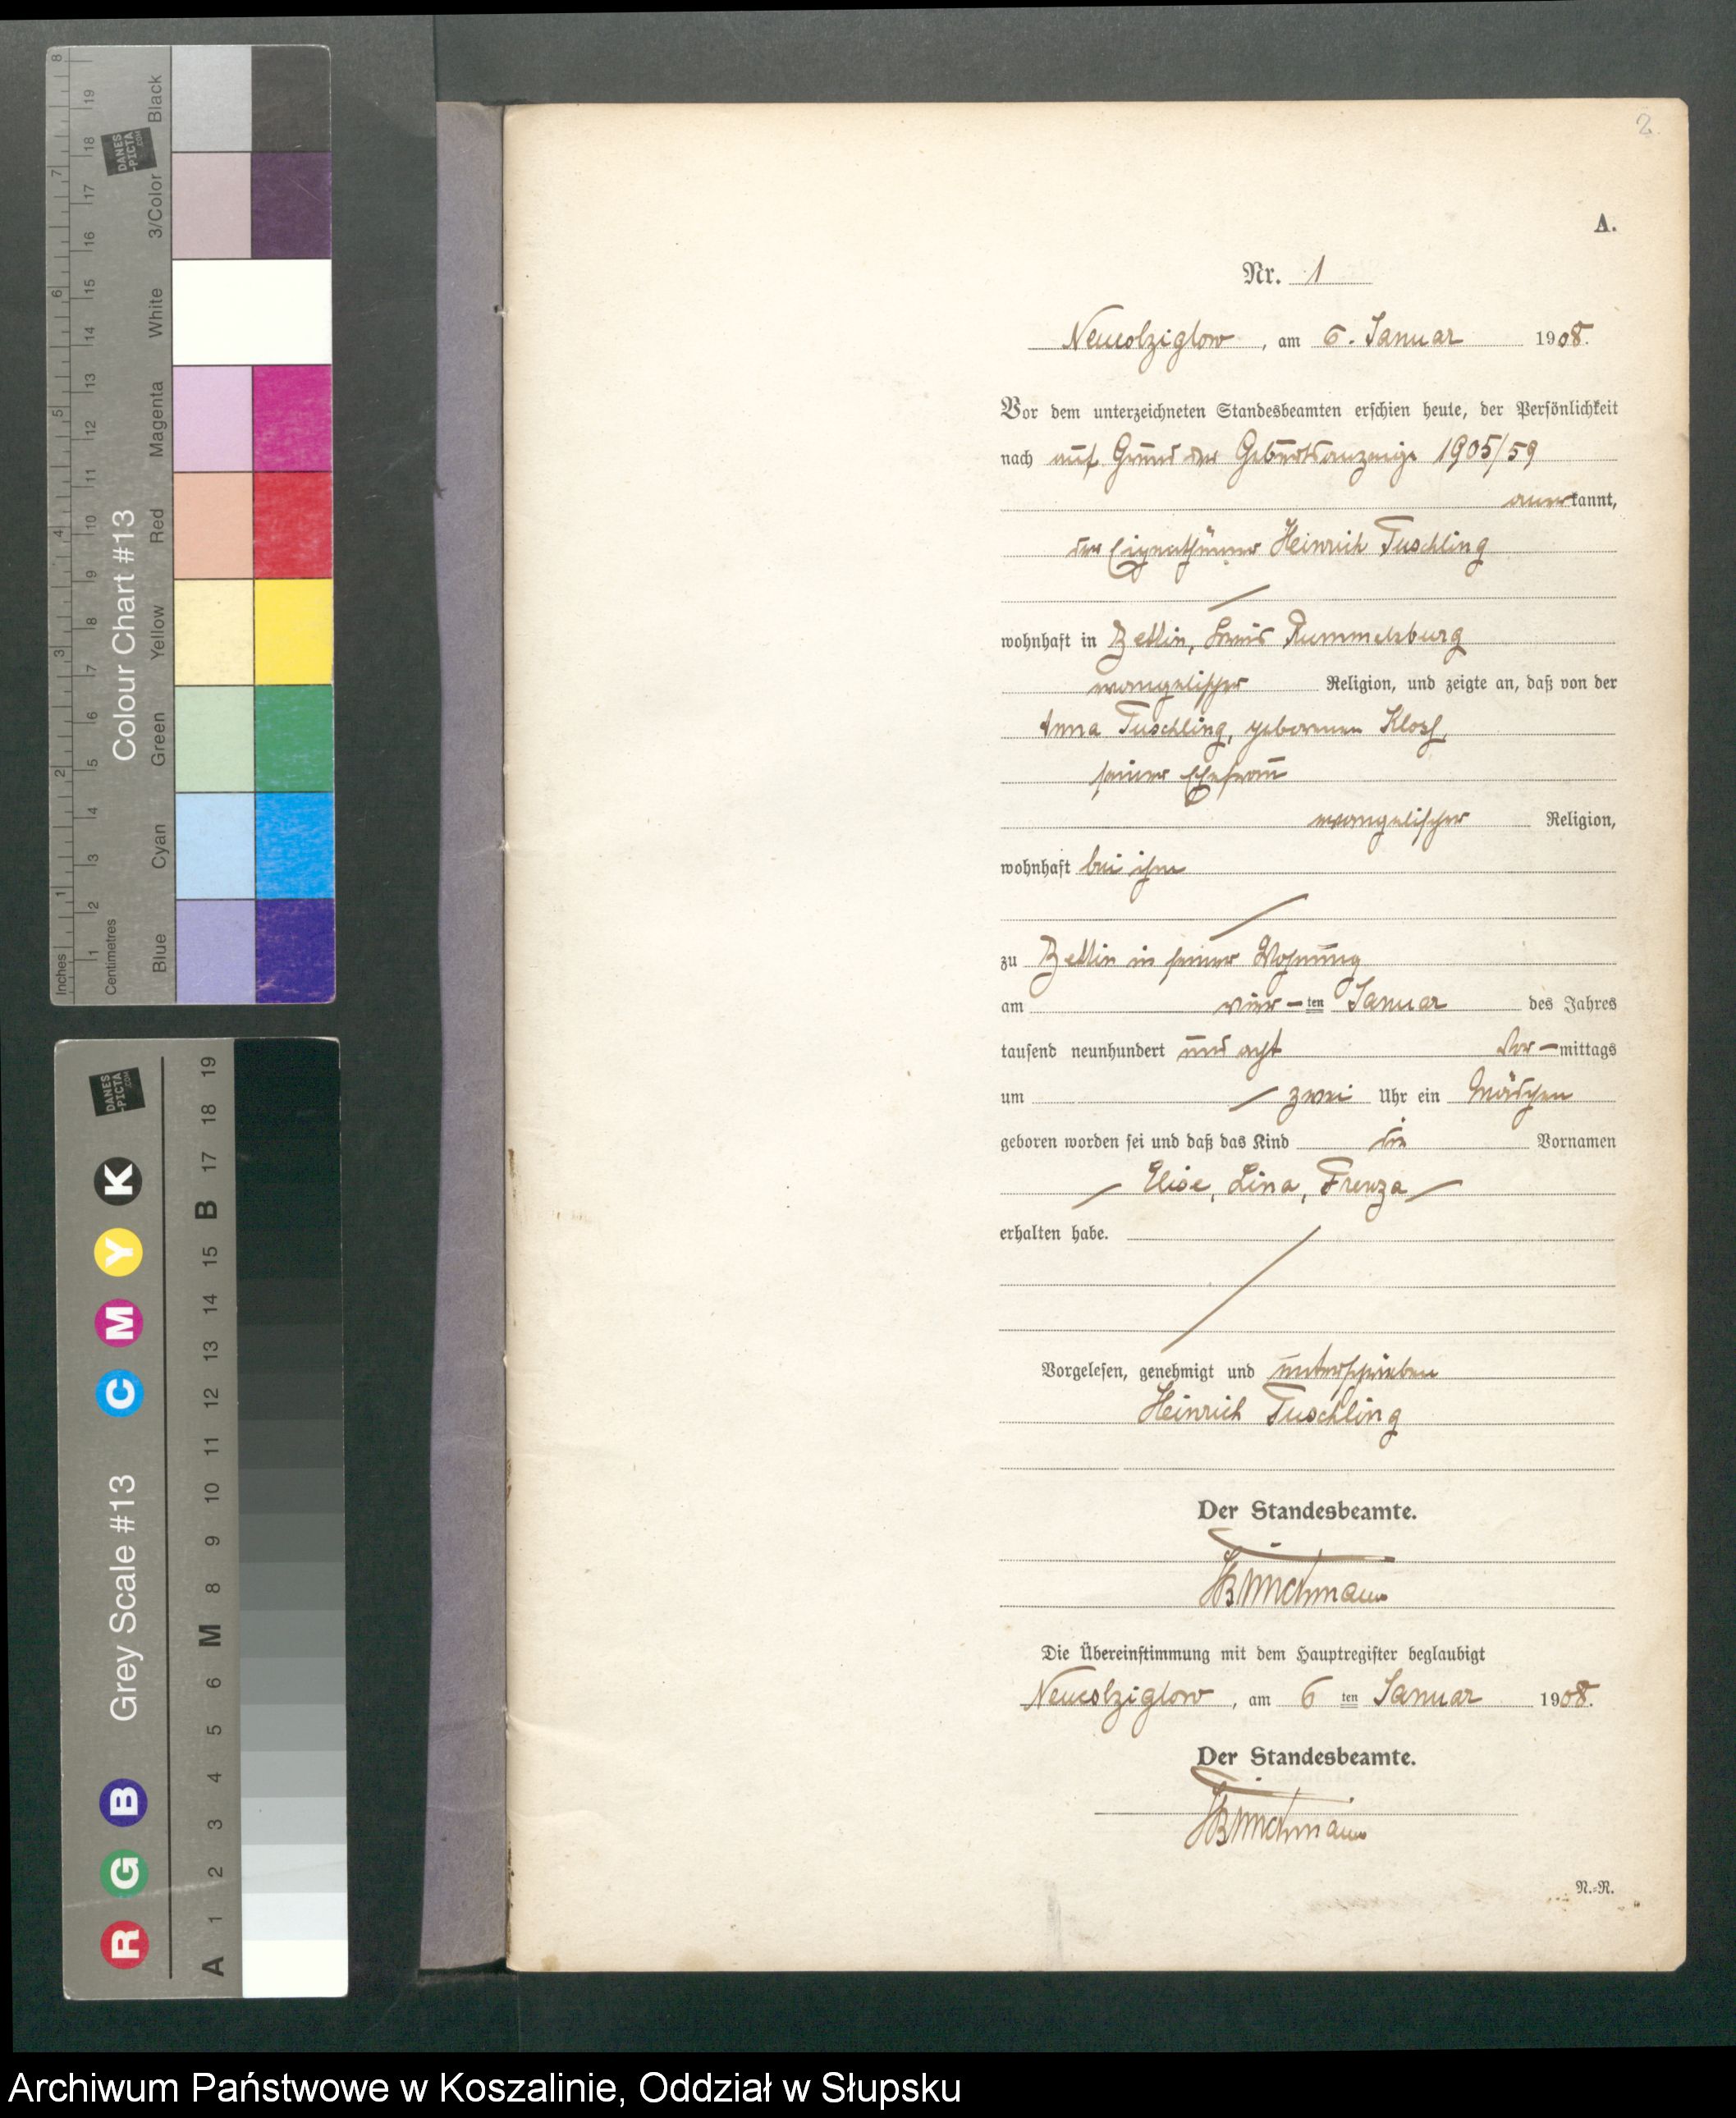 2
A.
Nr. 1
Neucolziglow, am 6. Januar 1908.
Vor dem unterzeichneten Standesbeamten erschien heute, der Persönlichkeit
nach auf Grund der Geburtsanzeige 1905/59
anerkannt,
der Eigenthümer Heinrich Tuschling
wohnhaft in Zettin, Kreis Rummelsburg
evangelischer Religion, und zeigte an, daß von der
Anna Tuschling, geborenen
seiner Ehefrau
evangelischer Religion,
wohnhaft bei ihm
zu Zettin in seiner Wohnung
am vier-ten Januar des Jahres
tausend neunhundert und acht Vor-mittags
um zwei Uhr ein Mädchen
geboren worden sei und daß das Kind die Vornamen
Elise, Lina,
erhalten habe.
Vorgelesen, genehmigt und unterschrieben
Heinrich Tuschling
Der Standesbeamte.
Die Übereinstimmung mit dem Hauptregister beglaubigt
Neucolziglow, am 6 ten Januar 1908.
Der Standesbeamte.
N.=R.
Colour Chart #13
DANES-PICTA.COM
Inches 1 2 3 4 5 6 7 8
Centimetres 1 2 3 4 5 6 7 8 9 10 11 12 13 14 15 16 17 18 19
Blue Cyan Green Yellow Red Magenta White 3/Color Black
Grey Scale #13
DANES-PICTA.COM
R G B C M Y K
A 1 2 3 4 5 6 M 8 9 10 11 12 13 14 15 B 17 18 19
Archiwum Państwowe w Koszalinie, Oddział w Słupsku